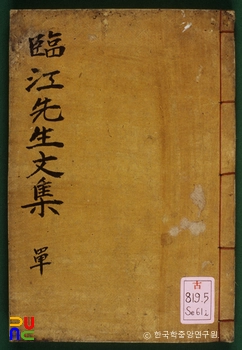 臨江先生文集
單
古
819.5
Se61ㄴ
© 한국학중앙연구원